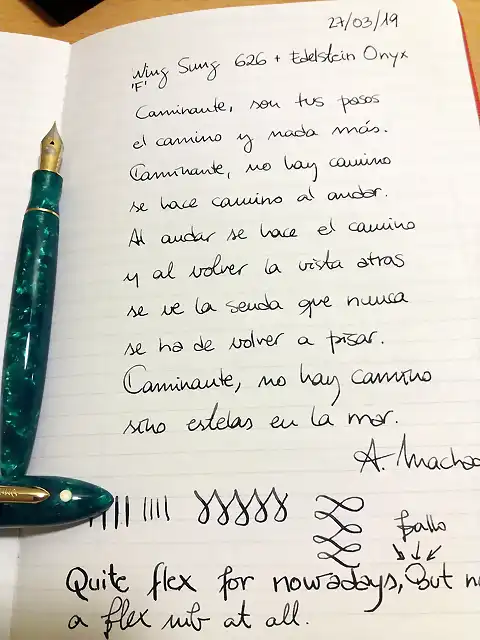 27/03/19
Wing Sung 626 + Edelstein Onyx
'F'
Caminante, son tus pasos
el camino y nada más.
Caminante, no hay camino
se hace camino al andar.
Al andar se hace el camino
y al volver la vista atras
se ve la senda que nunca
se ha de volver a pisar.
Caminante, no hay camino
sino estelas en la mar.
A. Machad
fallo
Quite flex for nowadays, But n
a flex nib at all.